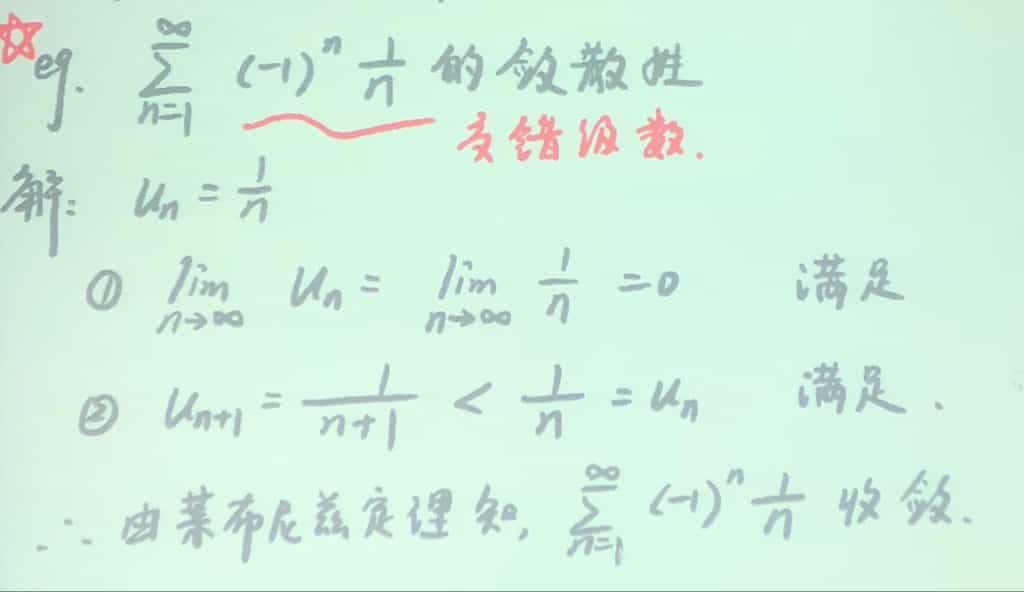 eg. $\sum_{n=1}^{\infty} (-1)^n \frac{1}{n}$ 的敛散性
交错级数.
解: $u_n = \frac{1}{n}$
① $\lim_{n \to \infty} u_n = \lim_{n \to \infty} \frac{1}{n} = 0$ 满足
② $u_{n+1} = \frac{1}{n+1} < \frac{1}{n} = u_n$ 满足.
∴ 由莱布尼兹定理知, $\sum_{n=1}^{\infty} (-1)^n \frac{1}{n}$ 收敛.